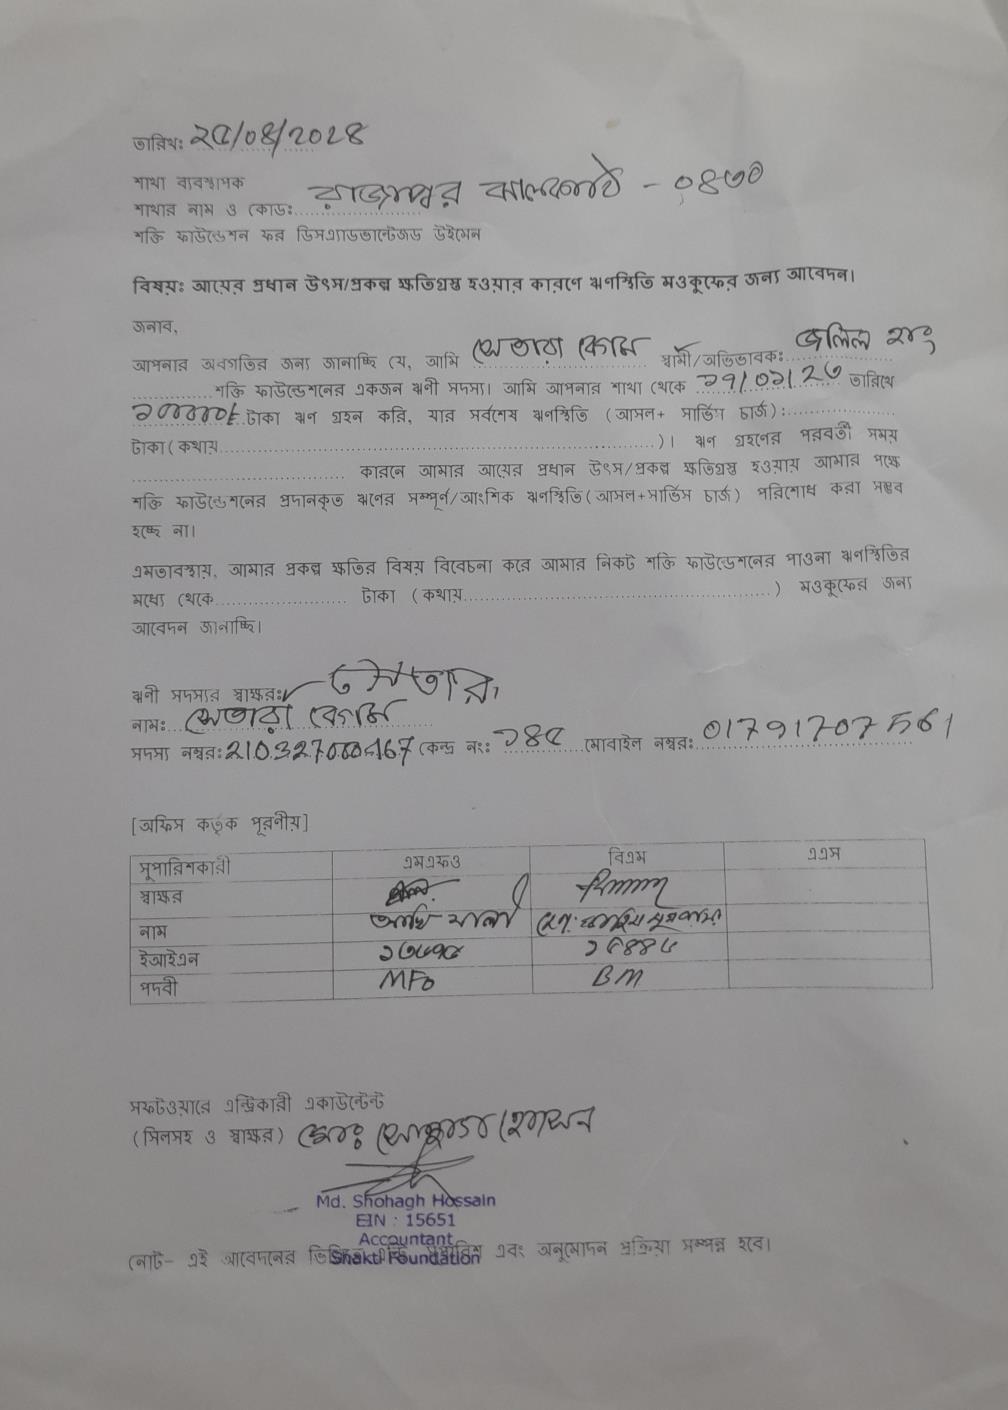 তারিখঃ ২৫/০৪/২০২৪
শাখা ব্যবস্থাপক
শাখার নাম ও কোডঃ.................... রাজাপুর ঝালকাঠি - ০৪৩০
শক্তি ফাউন্ডেশন ফর ডিসএ্যাডভান্টেজড উইমেন
বিষয়ঃ আয়ের প্রধান উৎস/প্রকল্প ক্ষতিগ্রস্ত হওয়ার কারণে ঋণস্থিতি মওকুফের জন্য আবেদন।
জনাব,
আপনার অবগতির জন্য জানাচ্ছি যে, আমি সেতারা বেগম স্বামী/অভিভাবকঃ জলিল হাং
শক্তি ফাউন্ডেশনের একজন ঋণী সদস্য। আমি আপনার শাখা থেকে ১৭/০১/২৩ তারিখে
টাকা ঋণ গ্রহন করি, যার সর্বশেষ ঋণস্থিতি (আসল+ সার্ভিস চার্জ):....................
টাকা(কথায়..................................................................)। ঋণ গ্রহণের পরবর্তী সময়
........................................ কারনে আমার আয়ের প্রধান উৎস/প্রকল্প ক্ষতিগ্রস্ত হওয়ায় আমার পক্ষে
শক্তি ফাউন্ডেশনের প্রদানকৃত ঋণের সম্পূর্ণ/আংশিক ঋণস্থিতি(আসল+সার্ভিস চার্জ) পরিশোধ করা সম্ভব
হচ্ছে না।
এমতাবস্থায়, আমার প্রকল্প ক্ষতির বিষয় বিবেচনা করে আমার নিকট শক্তি ফাউন্ডেশনের পাওনা ঋণস্থিতির
মধ্যে থেকে.................... টাকা (কথায়..............................................) মওকুফের জন্য
আবেদন জানাচ্ছি।
ঋণী সদস্যর স্বাক্ষরঃ সেতারা
নামঃ সেতারা বেগম
সদস্য নম্বরঃ কেন্দ্র নং: ১৪৫ মোবাইল নম্বরঃ
[অফিস কর্তৃক পূরণীয়]
সুপারিশকারী এমএফও বিএম এএস
স্বাক্ষর
নাম
ইআইএন
পদবী MFO BM
সফটওয়ারে এন্ট্রিকারী একাউন্টেন্ট
(সিলসহ ও স্বাক্ষর) মোঃ সোহাগ হোসেন
Md. Shohagh Hossain
EIN : 15651
Accountant
Shakti Foundation
নোট- এই আবেদনের এবং অনুমোদন প্রক্রিয়া সম্পন্ন হবে।